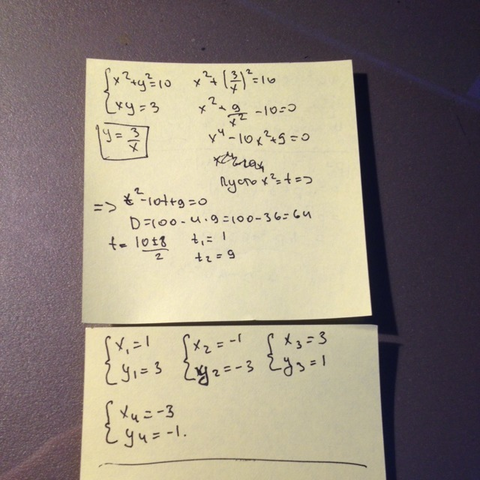 { x²+y²=10
xy=3
y = 3/x
x²+(3/x)²=10
x²+9/x²-10=0
x⁴-10x²+9=0
Пусть x²=t=>
=> t²-10t+9=0
D=100-4·9=100-36=64
t=(10±8)/2 t₁=1
t₂=9
{ x₁=1 { x₂=-1 { x₃=3
y₁=3 y₂=-3 y₃=1
{ x₄=-3
y₄=-1.